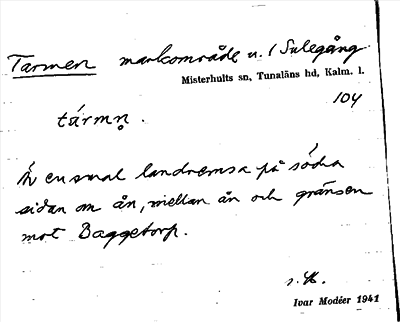 Tarmen markområde u. 1 Sulegång.
Misterhults sn, Tunaläns hd, Kalm. l.
104
tármn̥.
Är en smal landremsa på södra
sidan om ån, mellan ån och gränsen
mot Baggetorp.
Ivar Modéer 1941